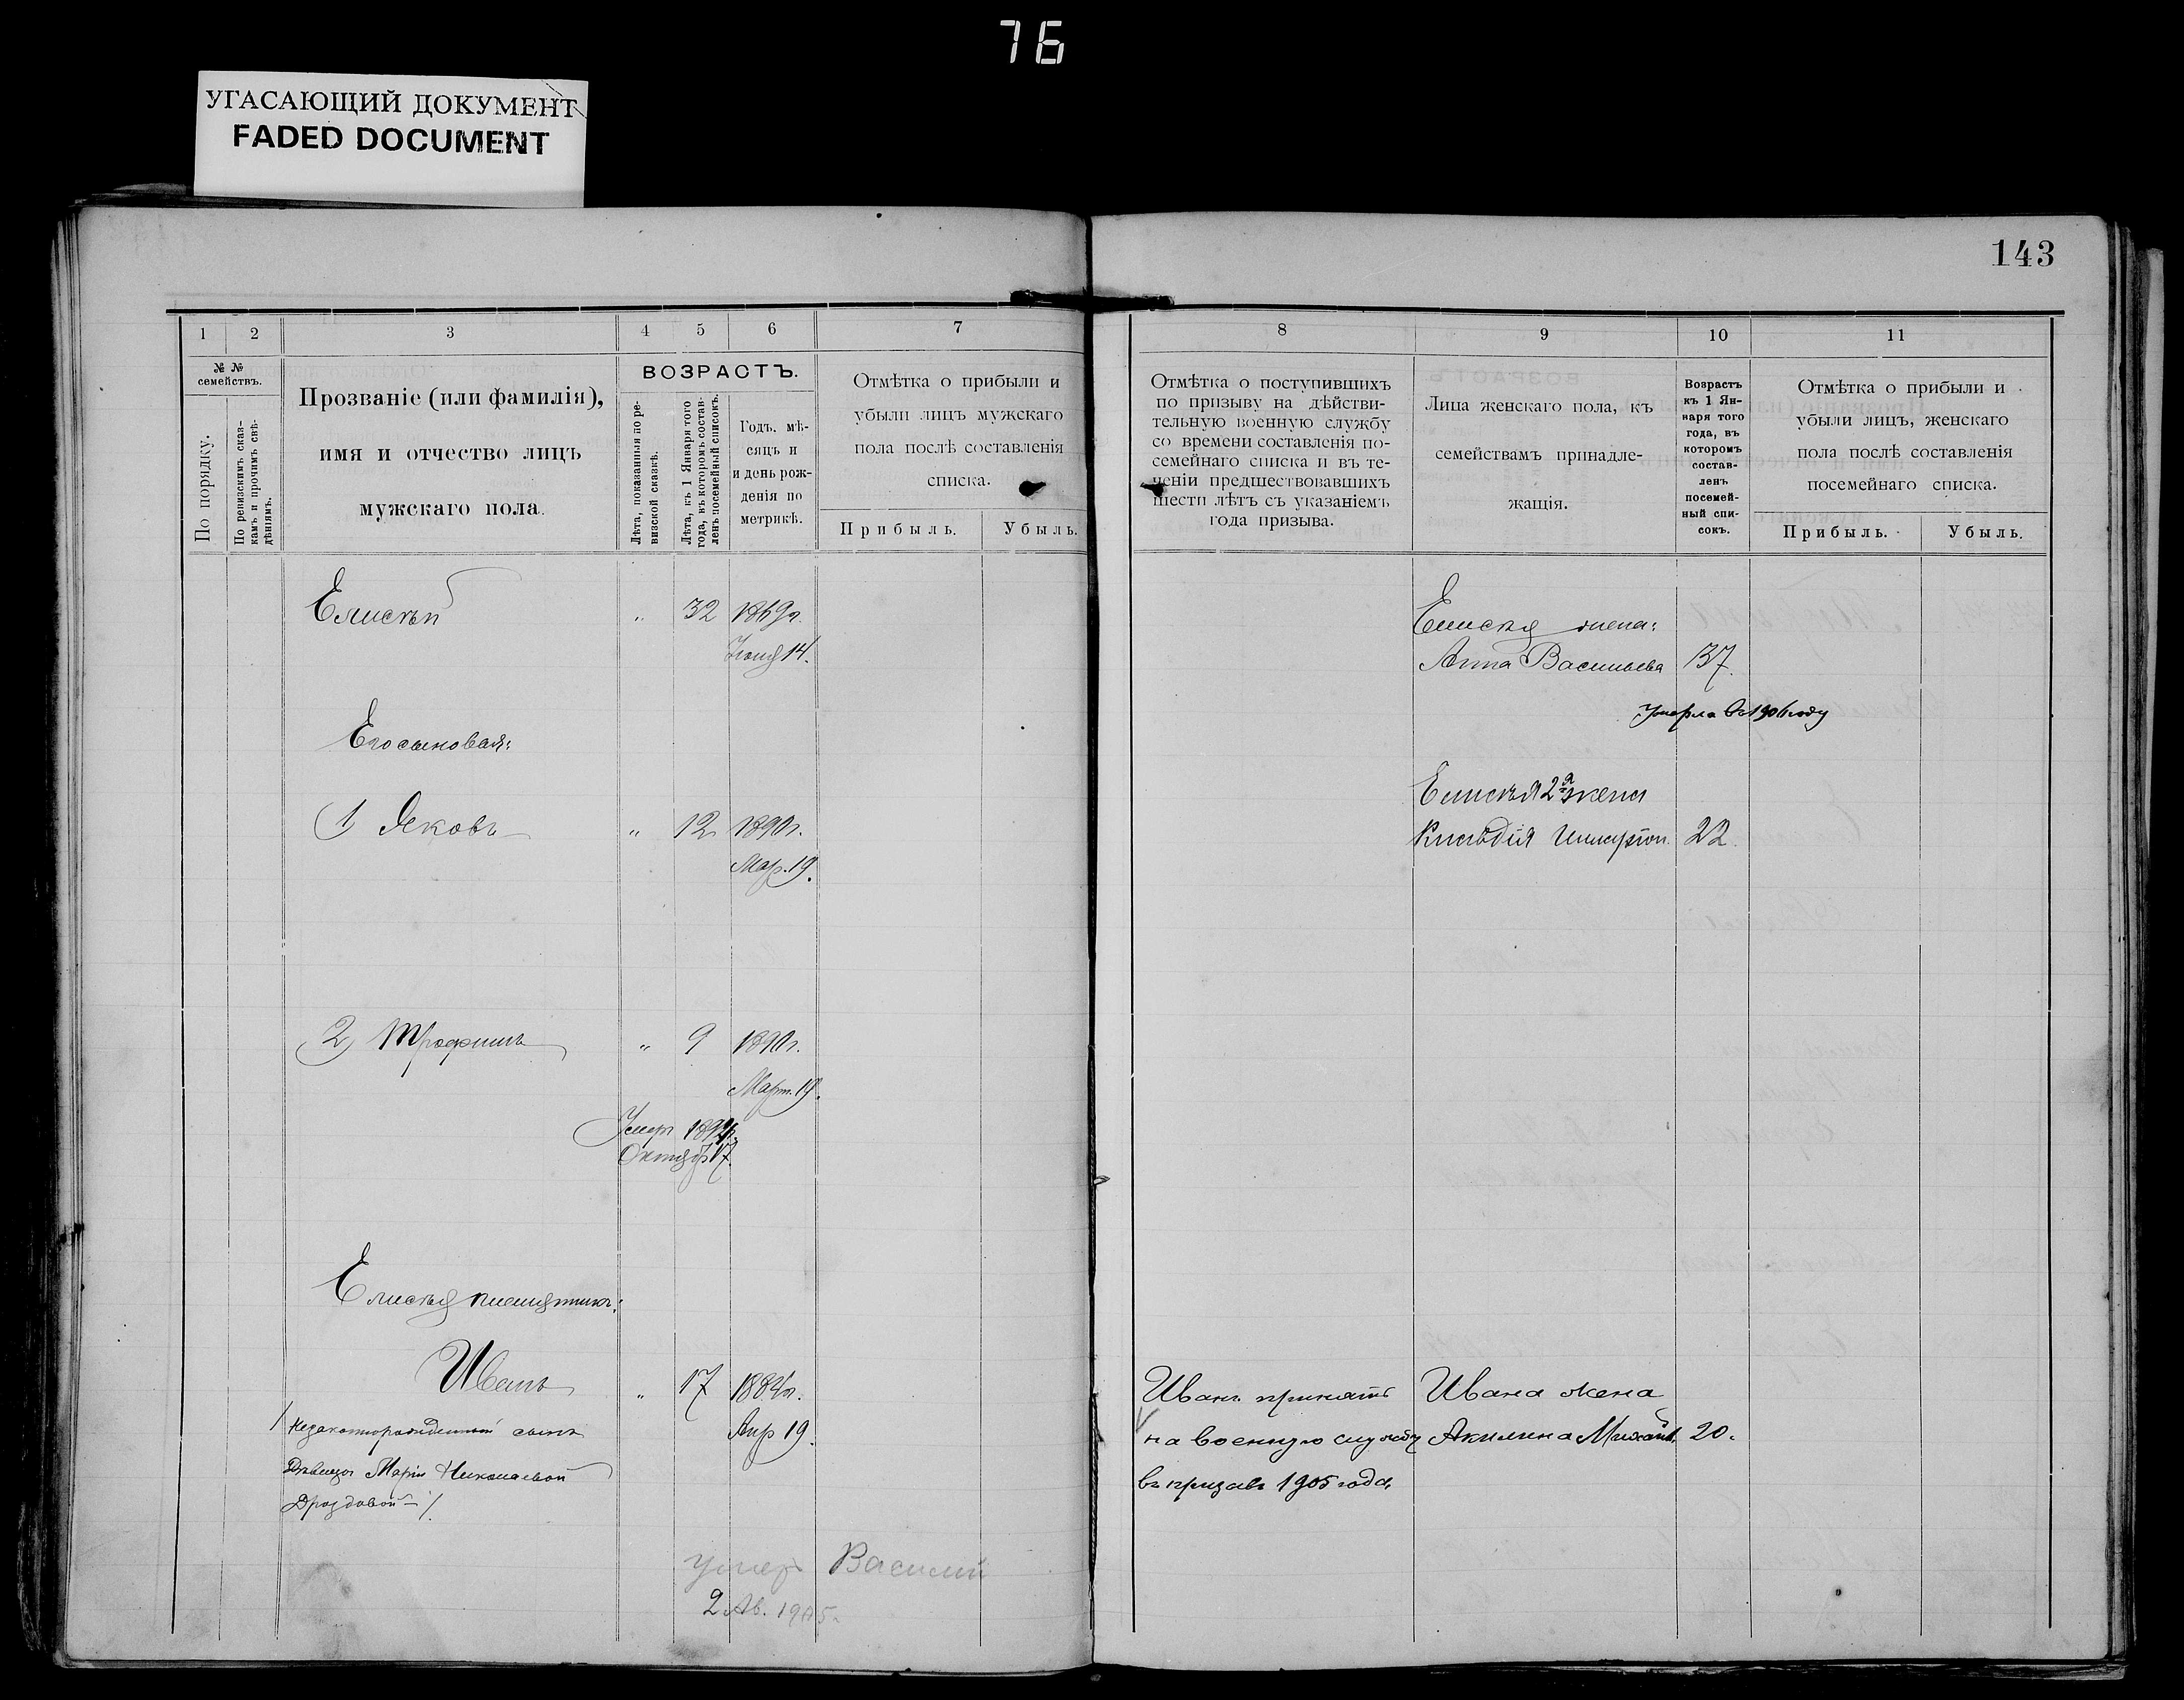 76
УГАСАЮЩИЙ ДОКУМЕНТ
FADED DOCUMENT
143
1 2 3 4 5 6 7
№ №
семействъ.
По порядку.
По ревизскимъ сказ-
камъ и прочимъ свѣ-
дѣніямъ.
Прозваніе (или фамилія),
имя и отчество лицъ
мужскаго пола.
ВОЗРАСТЪ.
Лѣта, показанныя по ре-
визской сказкѣ.
Лѣта, къ 1 Января того
года, въ которомъ состав-
ленъ посемейный списокъ.
Годъ, мѣ-
сяцъ и
и день рож-
денія по
метрикѣ.
Отмѣтка о прибыли и
убыли лицъ мужскаго
пола послѣ составленія
списка.
Прибыль. Убыль.
Елисѣй „ 32 1869г.
Іюня 14.
Его сыновья:
1) Яковъ „ 12 1890г.
Мар. 19.
2) Трофимъ „ 9 1890г.
Март. 19.
Умеръ
Октяб. 17.
Елисѣя племянникъ:
Иванъ „ 17 1884г.
Апр 19.
/ Незаконнорожденный сынъ
Дѣвицы Маріи Николаевой
Дроздовой — /.
умеръ Василий
2 Ав. 1905г.
8 9 10 11
Отмѣтка о поступившихъ
по призыву на дѣйстви-
тельную военную службу
со времени составленія по-
семейнаго списка и въ те-
ченіи предшествовавшихъ
шести лѣтъ съ указаніемъ
года призыва.
Лица женскаго пола, къ
семействамъ принадле-
жащія.
Возрастъ
къ 1 Ян-
варя того
года, въ
которомъ
состав-
ленъ
посемей-
ный спи-
сокъ.
Отмѣтка о прибыли и
убыли лицъ, женскаго
пола послѣ составленія
посемейнаго списка.
Прибыль. Убыль.
Елисѣя жена:
Анна Васильева 37.
Умерла въ 1906 году
Елисѣя 2я жена
Иларіон. 22.
Иванъ принятъ
на военную службу
въ призывъ 1905 года,
Ивана жена
Акилина Михайл. 20.